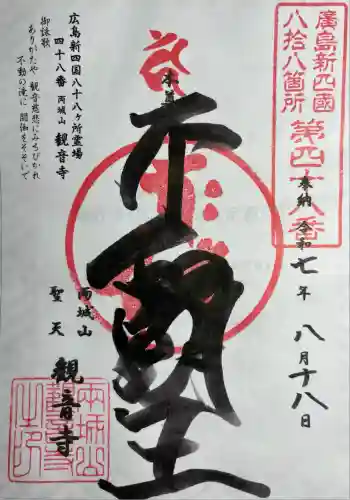 廣島新四國
八拾八箇所
第四十八番
奉納 令和七年 八月十八日
本尊
不動明王
両城山
聖天
観音寺
広島新四国八十八ヶ所霊場
四十八番 両城山 観音寺
御詠歌
ありがたや 観音慈悲にみちびかれ
不動の滝に 閼伽をそそいで